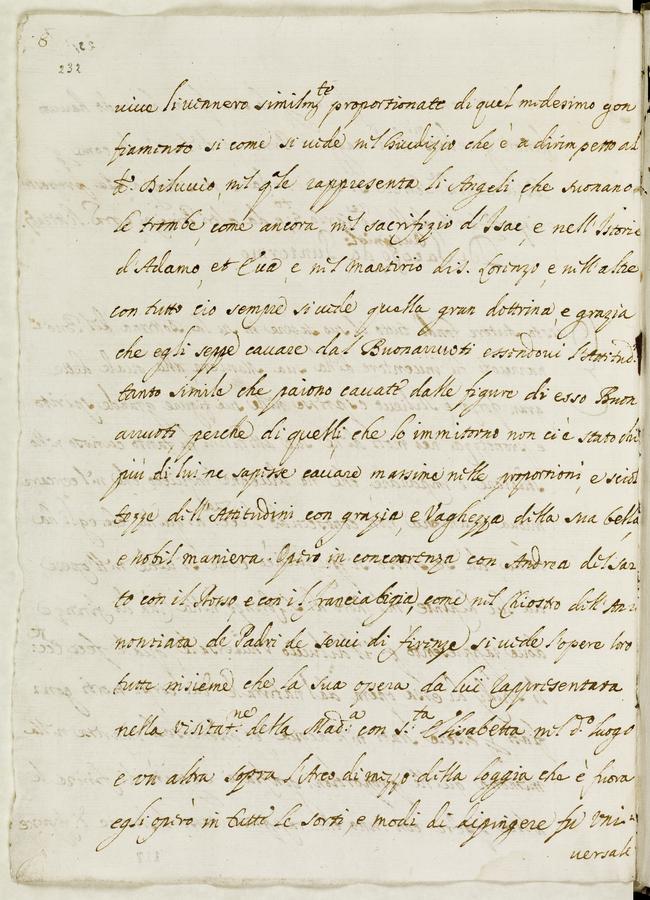 8
232
vive li vennero similm.te proportionate di quel medesimo gon
fiamento si come si vede nel Giudizio che è a dirimpetto al
d.o Diluvio, nel q.le rappresenta li Angeli, che suonano
le trombe, come ancora, nel sacrifizio d'Isac, e nell'Istorie
d'Adamo, et Eva, e nel martirio di S. Lorenzo, e nell'altre
con tutto cio sempre si vede quella gran dottrina, e grazia
che egli seppe cavare dal Buonarruoti essendovi l'Attitud:
tanto simile che paiono cavate dalle figure di esso Buon
arruoti, perche di quelli, che lo immitorno non ci è stato chi
più di lui ne sapesse cavare massime nelle proportioni, e sciol
tezze dell'Attitudini con grazia, e Vaghezza della sua bella,
e nobil maniera. Operò in concorrenza con Andrea del Sar
to con il Rosso e con il Francia bigia, come nel Chiostro dell'An
nontiata de Padri de servi di firenze, si vede l'opere loro
tutte insieme che la sua opera da lui rappresentata
nella visitat.ne della Mad.a con S.ta Elisabetta nel d.o luogo
e un altra sopra l'Arco di mezzo della loggia che è fuora
egli operò in tutte le sorti, e modi di dipingere fu Uni-
versale